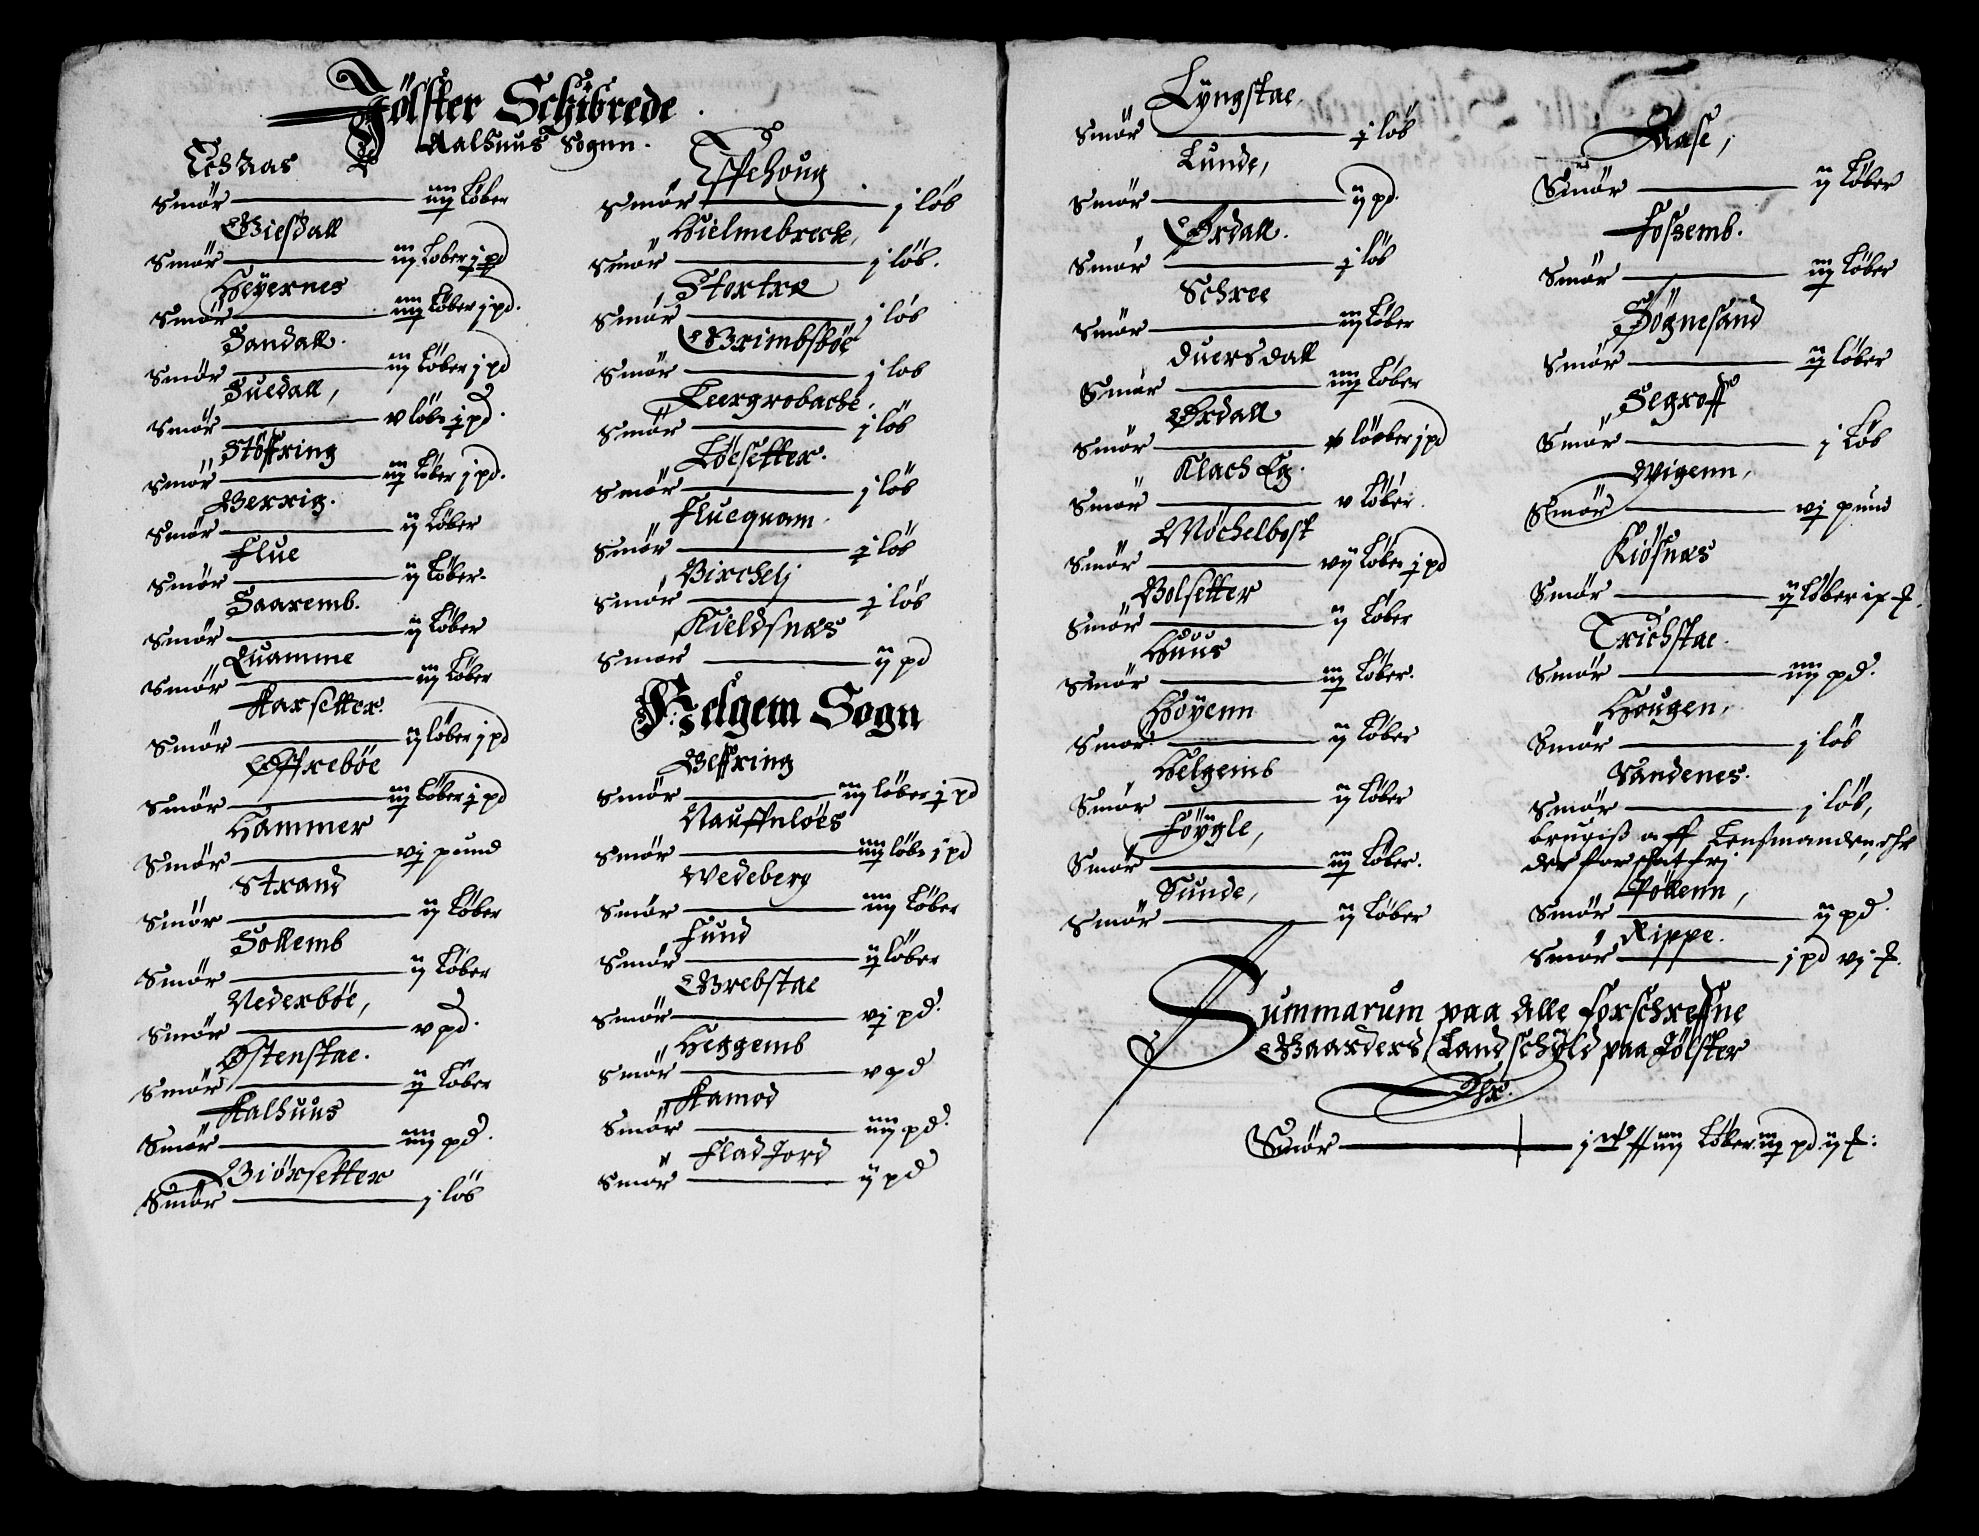 Jölster Schibrede
Aalhuus Sognn.
Echaas
Smör — iiij Löber
Giesdall
Smör — iij Löber j pd
Heyernes
Smör — iiij Löber j pd.
Sandall.
Smör — iij Löber j pd
Suedall,
Smör — v löb. j pd.
Stöffring
Smör — iij Löber j pd.
Berrig.
Smör — ij Löber
Flue
Smör — ij Löber.
Saaremb.
Smör — ij Löber
Quamme
Smör — iij Löber
Aarsetter.
Smör — ij löber j pd
Øffreböe
Smör — iij Löber j pd
Hammer
Smör — vj pund
Strand
Smör — ij Löber
Sollemb
Smör — ij Löber
Nederböe,
Smör — v pd.
Østenstae.
Smör — ij Löber
Aalhuus
Smör — iiij pd.
Biörsetter
Smör — j löb
Effehoug
Smör — j löb
Hielmebreck,
Smör — j löb.
Stortræ
Smör — j löb
Grimbsböe
Smör — j löb
Leergrobache,
Smör — j löb
Löesetter.
Smör — j löb
Fluequam.
Smör — j löb
Birchelj
Smör — j löb
Kieldsnæs
Smör — ij pd
Helgem Sogn
Beffring
Smör — iij löber j pd
Nauffnlöes
Smör — iiij löb. j pd
Wedeberg
Smör — iiij Löber
Fund
Smör — ij löber
Grebstae
Smör — vj pd.
Heggemb
Smör — v pd
Aamod
Smör — iiij pd.
Fladjord
Smör — ij pd
Lyngstae,
Smör — j löb
Lunde,
Smör — ij pd.
Ørdall.
Smör — j löb
Schree
Smör — iij Löber
Duersdall
Smör — iiij Löber
Ørdall
Smör — v löeber j pd
Klach Eg.
Smör — v Löber.
Möchelbost
Smör — vij Löber j pd
Bolsetter
Smör — ij Löber
Huus
Smör — iij Löber.
Höyenn
Smör — ij Löber
Helgemb
Smör — ij Löber
Föygle,
Smör — iij Löber.
Sunde,
Smör — ij Löber
Aase,
Smör — ij Löber
Fossemb.
Smör — iij Löber
Sögnesand
Smör — ij löber
Segroff
Smör — j Löb
Wigenn,
Smör — vj pund
Kiösnæs
Smör — ij löber
Trichstae.
Smör — iiij pd.
Hougen,
Smör — j löb
Sandenes.
Smör — j löb,
brugis aff Lensmanden, Er
der for schatfrj
Hollenn,
Smör — ij pd.
Rippe.
Smör — j pd vj
Summarum paa Alle forschreffne
Gaarders Landschyld paa Jölster
Ehr.
Smör — iiij Löber iij pd ij